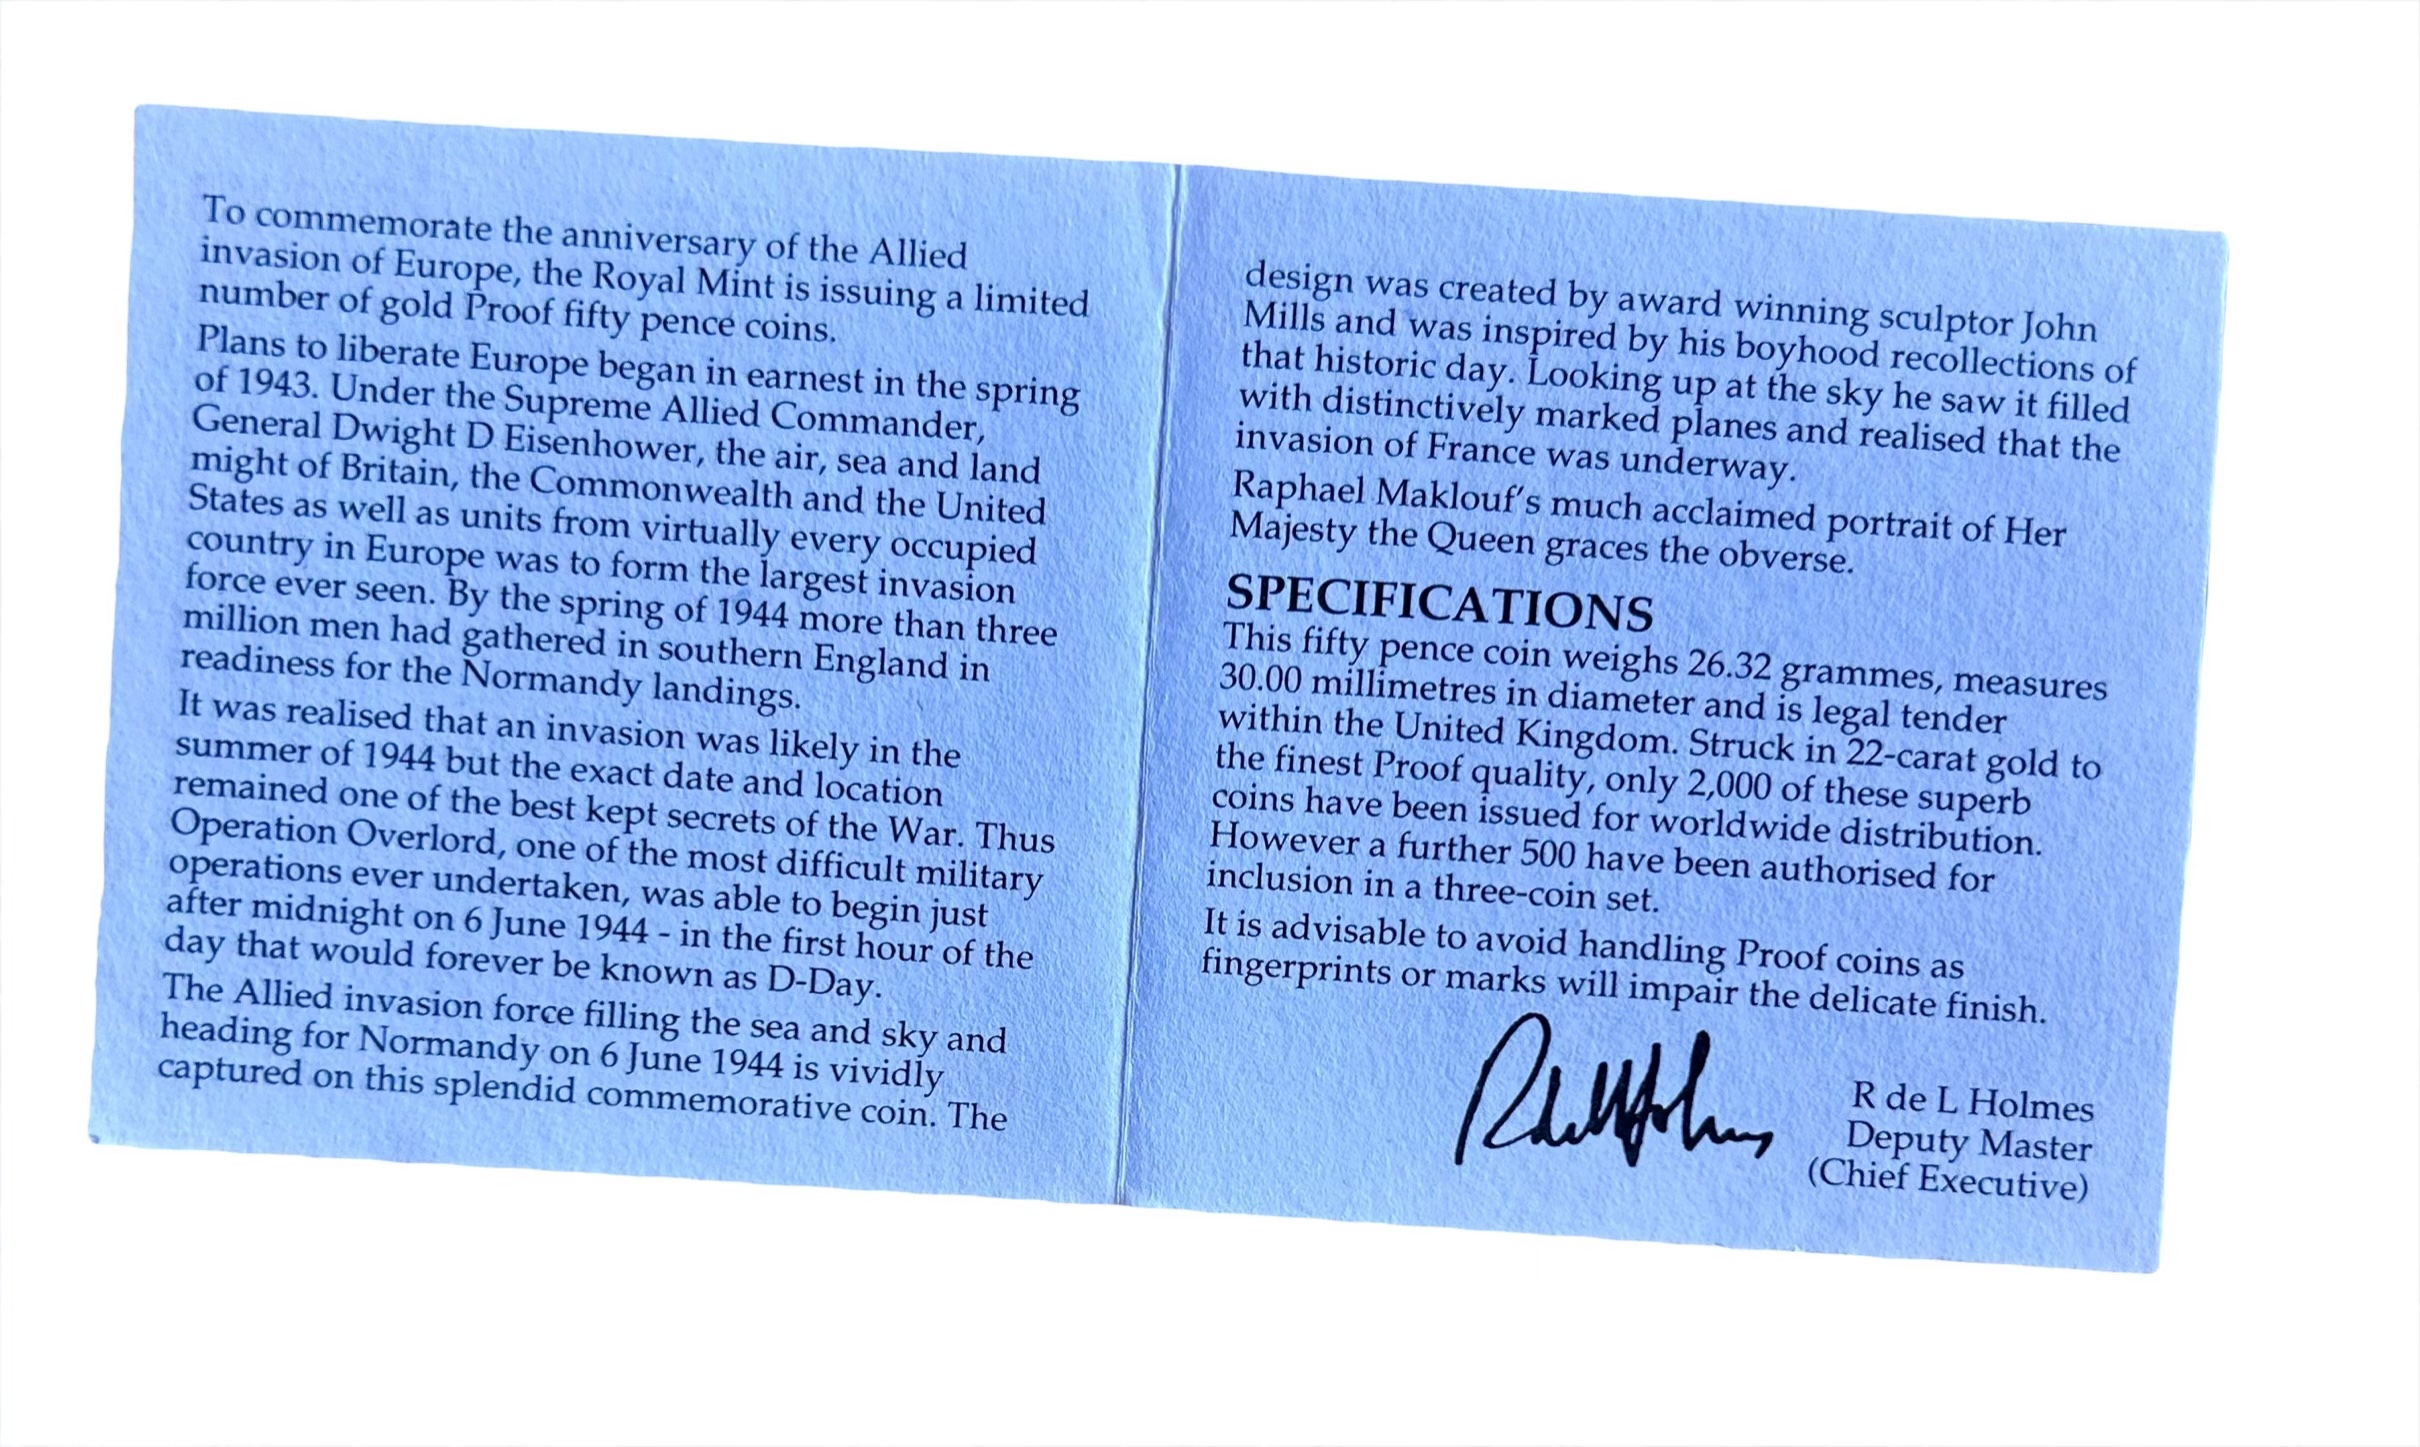 To commemorate the anniversary of the Allied
invasion of Europe, the Royal Mint is issuing a limited
number of gold Proof fifty pence coins.
Plans to liberate Europe began in earnest in the spring
of 1943. Under the Supreme Allied Commander,
General Dwight D Eisenhower, the air, sea and land
might of Britain, the Commonwealth and the United
States as well as units from virtually every occupied
country in Europe was to form the largest invasion
force ever seen. By the spring of 1944 more than three
million men had gathered in southern England in
readiness for the Normandy landings.
It was realised that an invasion was likely in the
summer of 1944 but the exact date and location
remained one of the best kept secrets of the War. Thus
Operation Overlord, one of the most difficult military
operations ever undertaken, was able to begin just
after midnight on 6 June 1944 - in the first hour of the
day that would forever be known as D-Day.
The Allied invasion force filling the sea and sky and
heading for Normandy on 6 June 1944 is vividly
captured on this splendid commemorative coin. The
design was created by award winning sculptor John
Mills and was inspired by his boyhood recollections of
that historic day. Looking up at the sky he saw it filled
with distinctively marked planes and realised that the
invasion of France was underway.
Raphael Maklouf's much acclaimed portrait of Her
Majesty the Queen graces the obverse.
SPECIFICATIONS
This fifty pence coin weighs 26.32 grammes, measures
30.00 millimetres in diameter and is legal tender
within the United Kingdom. Struck in 22-carat gold to
the finest Proof quality, only 2,000 of these superb
coins have been issued for worldwide distribution.
However a further 500 have been authorised for
inclusion in a three-coin set.
It is advisable to avoid handling Proof coins as
fingerprints or marks will impair the delicate finish.
RdeLHolmes
R de L Holmes
Deputy Master
(Chief Executive)